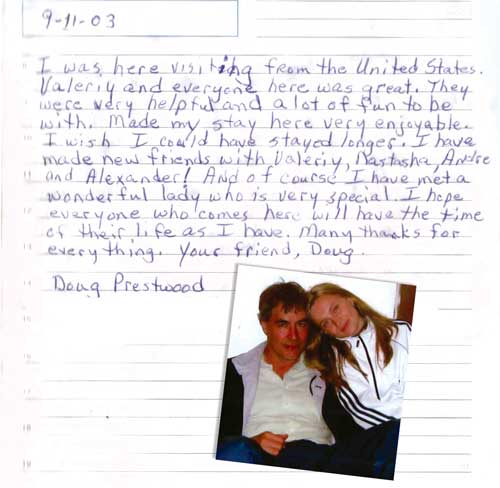 9-11-03
I was here visiting from the United States.
Valeriy and everyone here was great. They
were very helpful and a lot of fun to be
with. Made my stay here very enjoyable.
I wish I could have stayed longer. I have
made new friends with Valeriy, Nastasha, Andre
and Alexander! And of course I have met a
wonderful lady who is very special. I hope
everyone who comes here will have the time
of their life as I have. Many thanks for
everything. Your friend, Doug.
Doug Prestwood